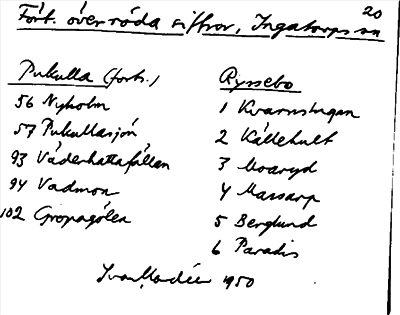 20
Fört. över röda siffror, Ingatorps sn
Pukulla (forts.)
56 Nyholm
57 Pukullasjön
93 Väderhattafällan
94 Vadmon
102 Gropagölen
Ryssebo
1 Kvarnstugan
2 Källehult
3 Moaryd
4 Massarp
5 Berglund
6 Paradis
Ivar Modéer 1950